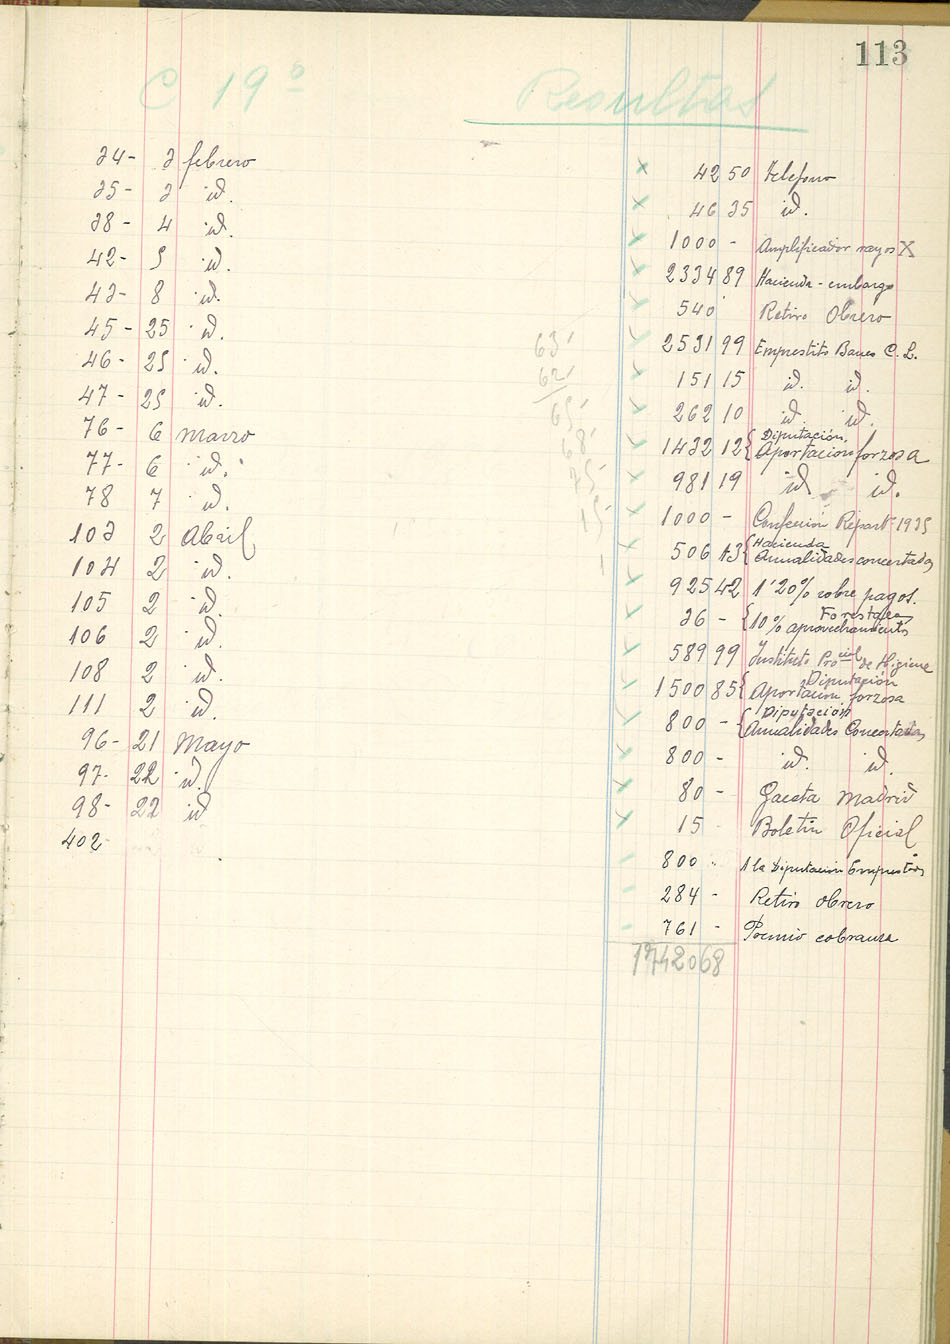 113
C 19º Resultas
34- 3 febrero × 42 50 telefono
35- 3 id. × 46 35 id.
38- 4 id. 1000 - Amplificador rayos X
42- 5 id. 2334 89 Hacienda - embargo
43- 8 id. 540 Retiro Obrero
45- 25 id. 2531 99 Emprestito Banco C. L.
46- 25 id. 151 15 id. id.
47- 25 id. 262 10 id. id.
76- 6 Marzo 1432 12 { Diputación. Aportacion forzosa
77- 6 id. 981 19 id. id.
78 7 id. 1000 - Confección Repart- 1935
103 2 Abril 506 43 { Hacienda Anualidades concertadas
104 2 id. 925 42 1'20% sobre pagos.
105 2 id. 36 - { Forestales 10% aprovechamients
106 2 id. 589 99 Instituto Procial de Higiene
108 2 id. 1500 85 { Diputación Aportacion forzosa
111 2 id. 800 - { Diputación Anualidades Concertadas
96- 21 Mayo 800 - id. id.
97- 22 id. 80 - Gaceta Madrid
98- 22 id 15 - Boletin Oficial
402- 800 - A la Diputacion Emprestitos
284 - Retiro obrero
761 - Premio cobranza
17420 68
63'
62'
65'
68'
75'
15'
1